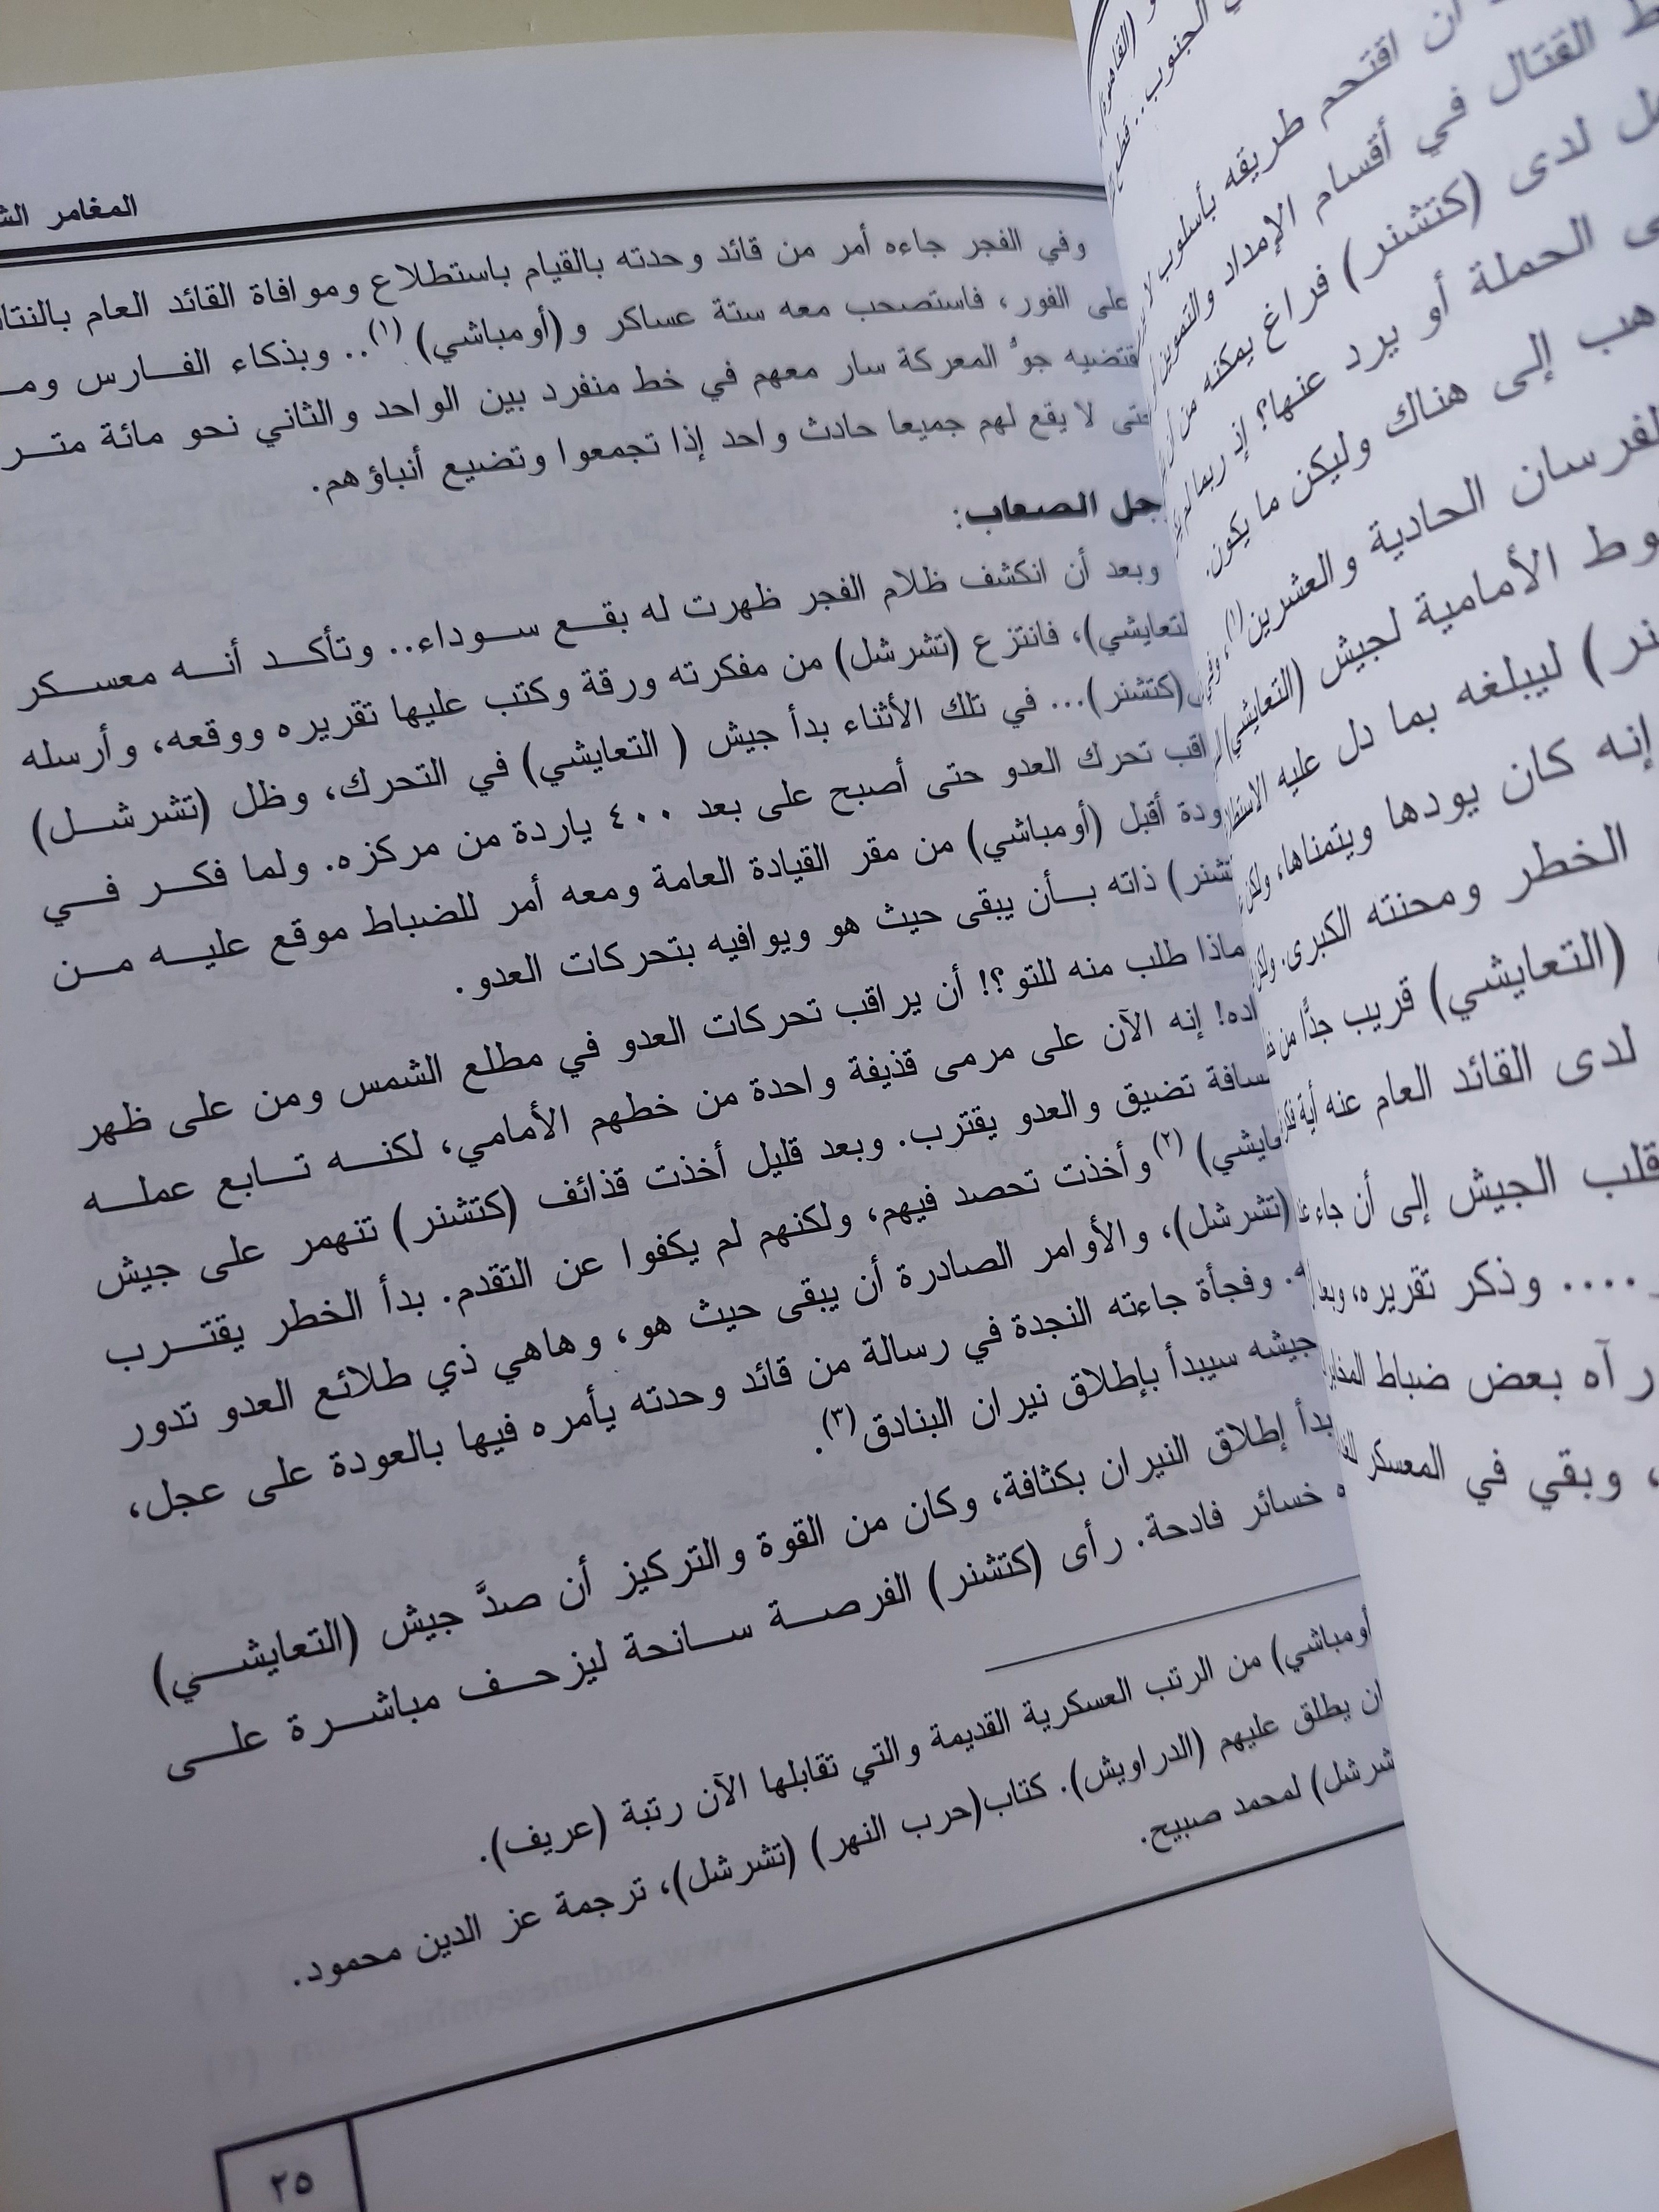 أن اقتحم طريقه بأسلوب
القتال في أقسام الإمداد والتموين
لدى (كتشنر) فراغ يمكنه من أن
الحملة أو يرد عنها؟ إذ ربما لم
إلى هناك وليكن ما يكون.
الحادية والعشرين(١)،
الأمامية لجيش (التعايشي)
ليبلغه بما دل عليه
إنه كان يودها ويتمناها، ولكن
الخطر ومحنته الكبرى. ولكن
(التعايشي) قريب جدًّا من
لدى القائد العام عنه أية
قلب الجيش إلى أن جاء
.... وذكر تقريره، وبعد
رآه بعض ضباط
، وبقي في المعسكر
المغامر
وفي الفجر جاءه أمر من قائد وحدته بالقيام باستطلاع وموافاة القائد العام
على الفور، فاستصحب معه ستة عساكر و(أومباشي) (١).. وبذكاء الفارس
جوُّ المعركة سار معهم في خط منفرد بين الواحد والثاني نحو مائة متر
حتى لا يقع لهم جميعا حادث واحد إذا تجمعوا وتضيع أنباؤهم.
الصعاب:
وبعد أن انكشف ظلام الفجر ظهرت له بقع سوداء.. وتأكد أنه معسكر
فانتزع (تشرشل) من مفكرته ورقة وكتب عليها تقريره ووقعه، وأرسله
(كتشنر)... في تلك الأثناء بدأ جيش ( التعايشي) في التحرك، وظل (تشرشل)
تحرك العدو حتى أصبح على بعد ٤٠٠ ياردة من مركزه. ولما فكر في
أقبل (أومباشي) من مقر القيادة العامة ومعه أمر للضباط موقع عليه من
ذاته بأن يبقى حيث هو ويوافيه بتحركات العدو.
ماذا طلب منه للتو؟! أن يراقب تحركات العدو في مطلع الشمس ومن على ظهر
إنه الآن على مرمى قذيفة واحدة من خطهم الأمامي، لكنه تابع عمله
تضيق والعدو يقترب. وبعد قليل أخذت قذائف (كتشنر) تنهمر على جيش
(٢) وأخذت تحصد فيهم، ولكنهم لم يكفوا عن التقدم. بدأ الخطر يقترب
(تشرشل)، والأوامر الصادرة أن يبقى حيث هو، وهاهي ذي طلائع العدو تدور
وفجأة جاءته النجدة في رسالة من قائد وحدته يأمره فيها بالعودة على عجل،
جيشه سيبدأ بإطلاق نيران البنادق(٣).
بدأ إطلاق النيران بكثافة، وكان من القوة والتركيز أن صدَّ جيش (التعايشي)
خسائر فادحة. رأى (كتشنر) الفرصة سانحة ليزحف مباشرة على
أومباشي) من الرتب العسكرية القديمة والتي تقابلها الآن رتبة (عريف).
يطلق عليهم (الدراويش). كتاب(حرب النهر) (تشرشل)، ترجمة عز الدين محمود.
لمحمد صبيح.
٢٥